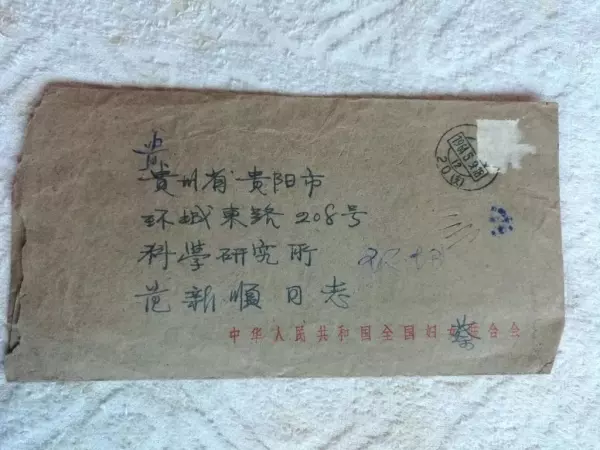 贵
貴州省貴阳市
环城東路208号
科學研究所
范新順同志
中华人民共和国全国妇女联合会
蔡